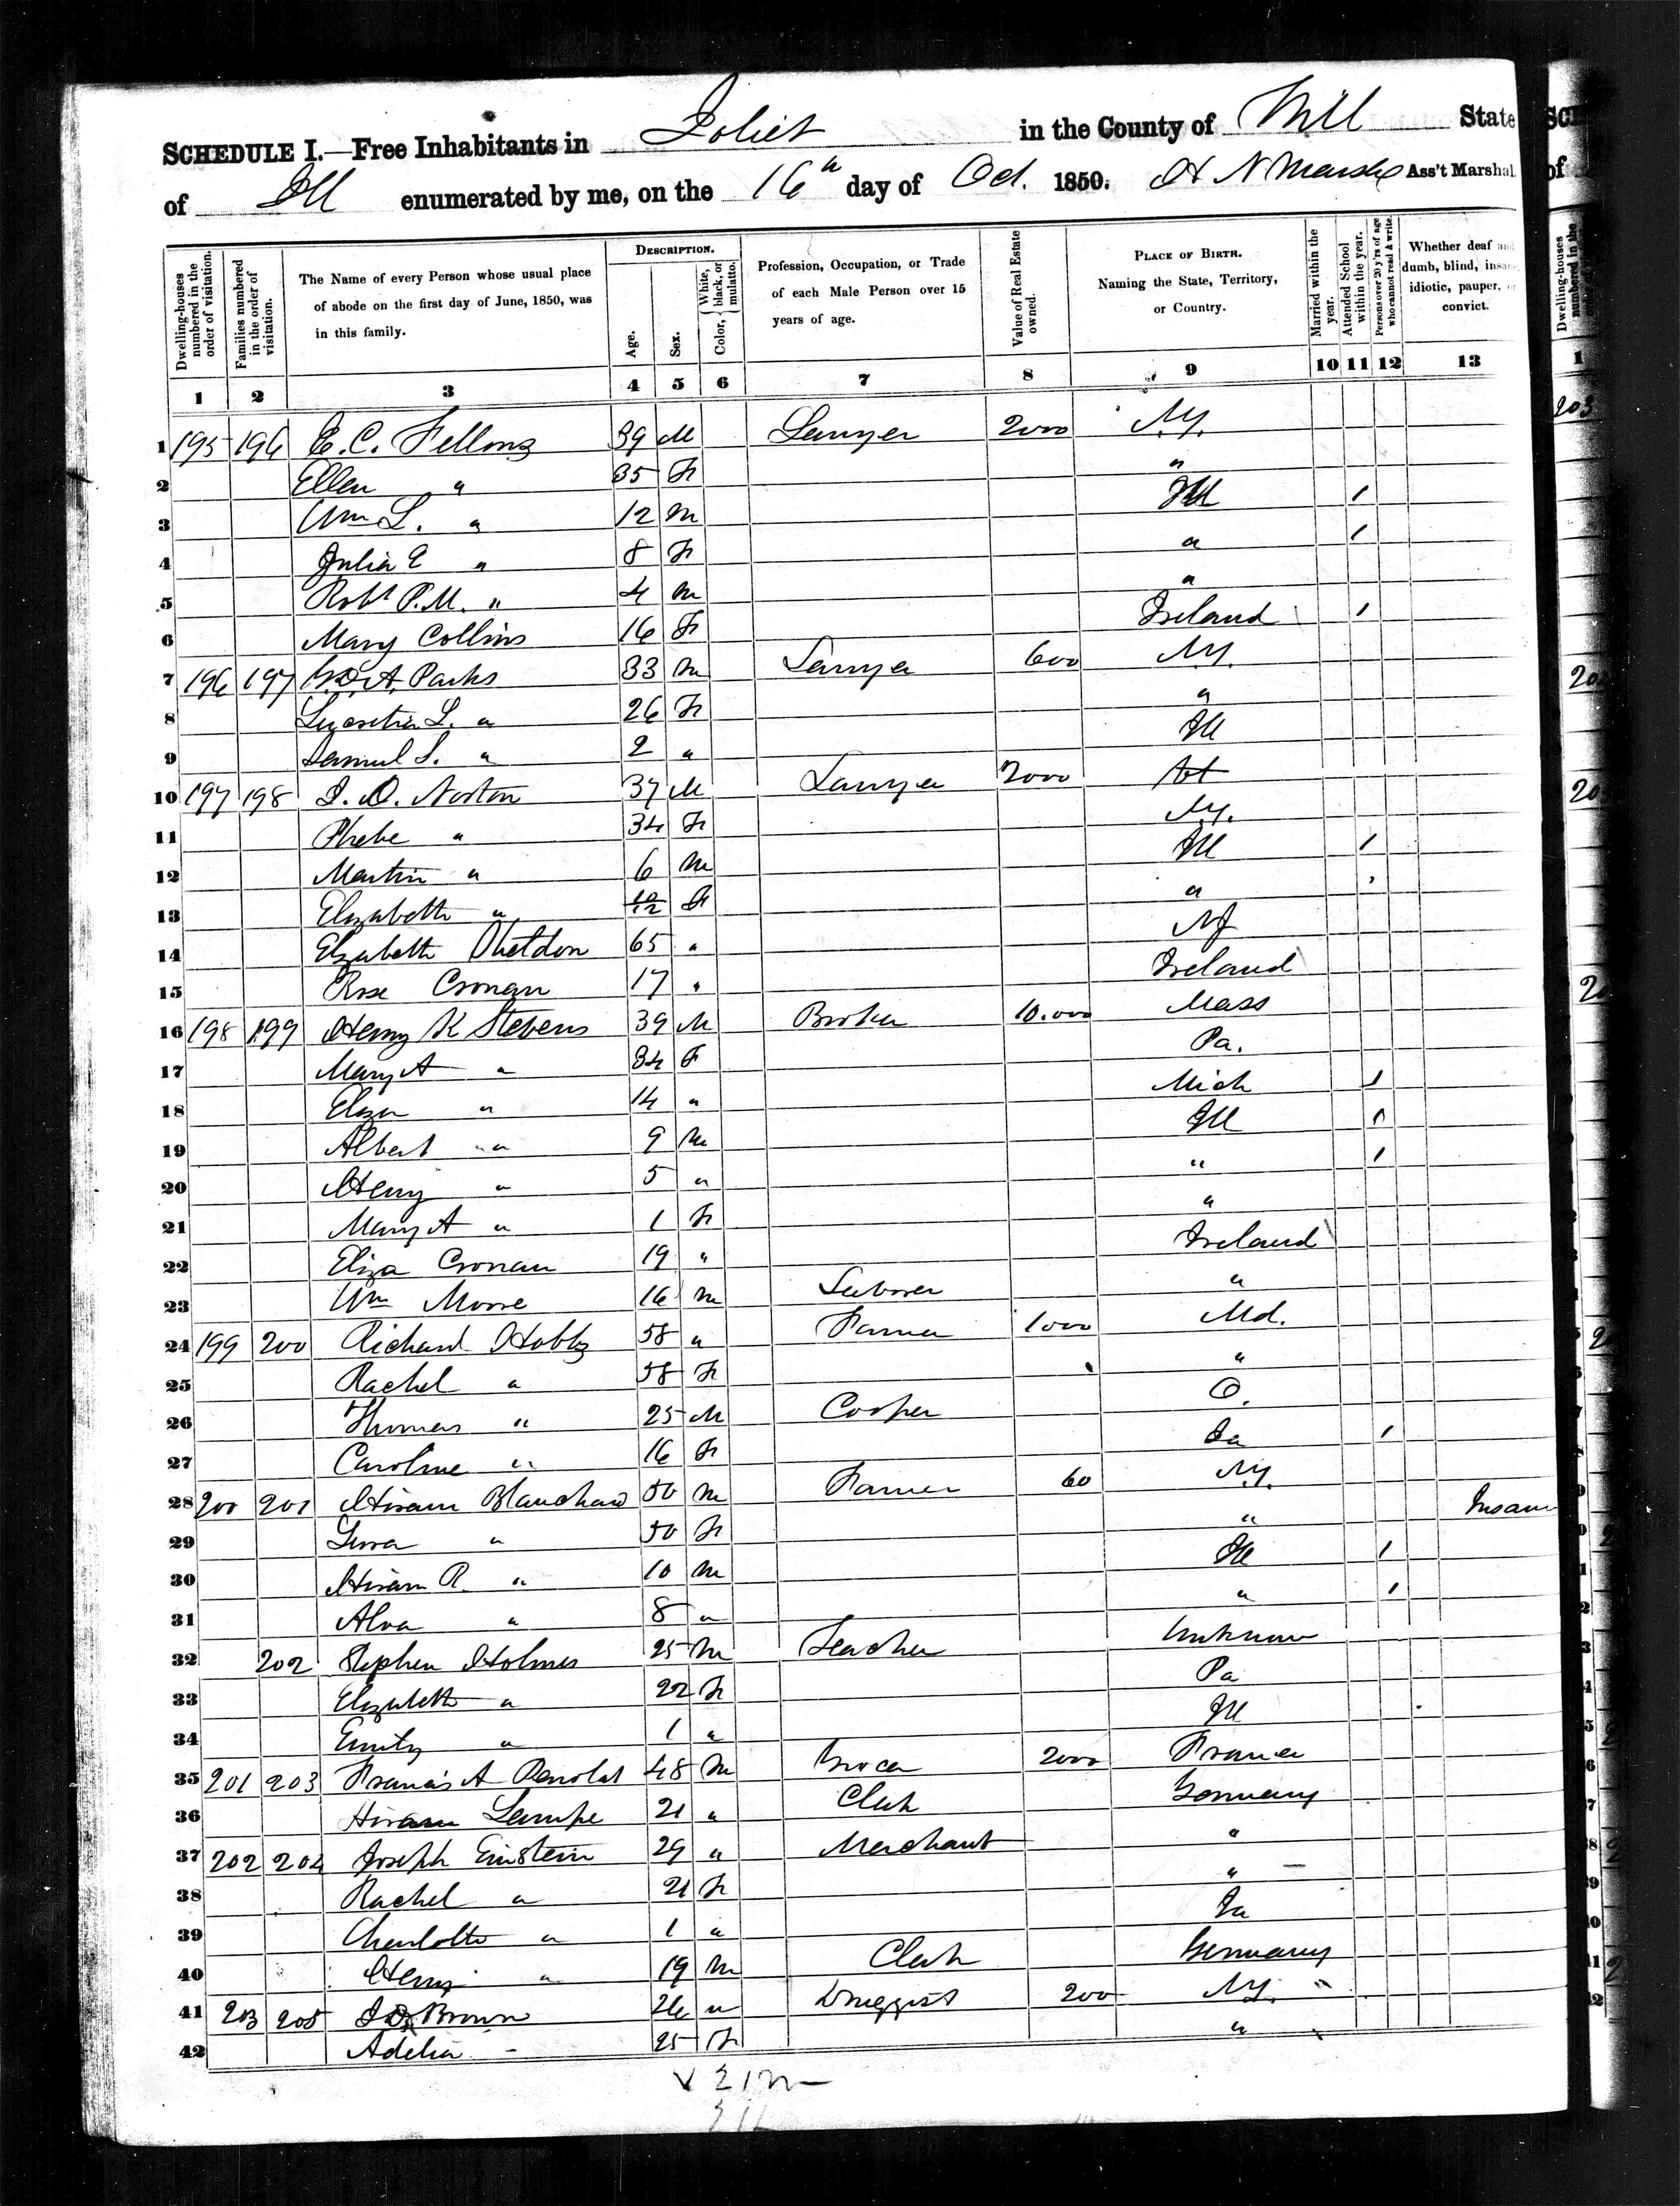 SCHEDULE I.—Free Inhabitants in Joliet in the County of Will State
of Ill enumerated by me, on the 16th day of Oct. 1850. Ass't Marshal.
DESCRIPTION.
Dwelling-houses numbered in the order of visitation.
Families numbered in the order of visitation.
The Name of every Person whose usual place of abode on the first day of June, 1850, was in this family.
Age.
Sex.
Color, { White, black, or mulatto.
Profession, Occupation, or Trade of each Male Person over 15 years of age.
Value of Real Estate owned.
PLACE OF BIRTH. Naming the State, Territory, or Country.
Married within the year.
Attended School within the year.
Persons over 20 y'rs of age who cannot read & write.
Whether deaf and dumb, blind, insane, idiotic, pauper, or convict.
1 2 3 4 5 6 7 8 9 10 11 12 13
1 195 196 E. C. Fellows 39 M Lawyer 2000 N.Y.
2 Ellen " 35 F "
3 Wm L. " 12 M Ill /
4 Julia E " 8 F " /
5 Robt P. M. " 4 M "
6 Mary Collins 16 F Ireland /
7 196 197 G.D.A. Parks 33 M Lawyer 600 N.Y.
8 Lucretia L. " 26 F "
9 Samuel S. " 2 " Ill
10 197 198 J. O. Norton 37 M Lawyer 2000 Vt
11 Phebe " 34 F N.Y.
12 Martin " 6 M Ill /
13 Elizabeth " 10/12 F " '
14 Elizabeth Sheldon 65 " NJ
15 Rose Cronan 17 " Ireland
16 198 199 Henry K Stevens 39 M Broker 10.000 Mass
17 Mary A " 34 F Pa.
18 Eliza " 14 " Mich /
19 Albert " 9 M Ill /
20 Henry " 5 " " /
21 Mary A " 1 F "
22 Eliza Cronan 19 " Ireland
23 Wm Moore 16 M Laborer "
24 199 200 Richard Hobbs 58 " Farmer 1000 Md.
25 Rachel " 58 F "
26 Thomas " 25 M Cooper O.
27 Caroline " 16 F Ia /
28 200 201 Hiram Blanchard 50 M Farmer 60 N.Y. Insane
29 " 50 F "
30 Hiram R. " 10 M Ill /
31 Alva " 8 " " /
32 202 Stephen Holmes 25 M Teacher Unknown
33 Elizabeth " 22 F Pa
34 Emily " 1 " Ill
35 201 203 Francis A 48 M Grocer 2000 France
36 Hiram Lampe 21 " Clerk Germany
37 202 204 Joseph Einstein 29 " Merchant "
38 Rachel " 21 F "
39 Charlotte " 1 " Ia
40 Henry " 19 M Clerk Germany
41 203 205 Brown 26 " Druggist 200 N.Y. "
42 Adelia - 25 F "